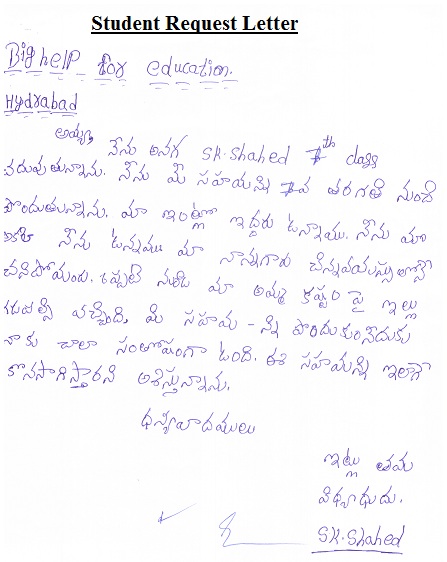 Student Request Letter
Big help for education.
Hydrabad
అయ్య,
నేను అనగ SK.Shahed 7th class
చదువుతున్నాను. నేను మీ సహయన్ని 7వ తరగతి నుండి
పొందుతున్నాను. మా ఇంట్లో ఇద్దరు ఉన్నాము. నేను మా
నేను ఉన్నము మా నాన్నగారు చిన్నవయస్సు
చనిపోయిండు. అప్పటి నుండి మా అమ్మ కష్టం పై ఇల్లు
గడవల్సి వచ్చింది. మీ సహయ-న్ని పొందుకుంనేదుకు
నాకు చాలా సంతోషంగా ఉంది. ఈ సహయన్ని ఇలాగే
కొనసాగిస్తారని ఆశిస్తున్నాను.
ధన్యవాదములు
ఇట్లు తమ
విధ్యార్థుడు.
SK.Shahed